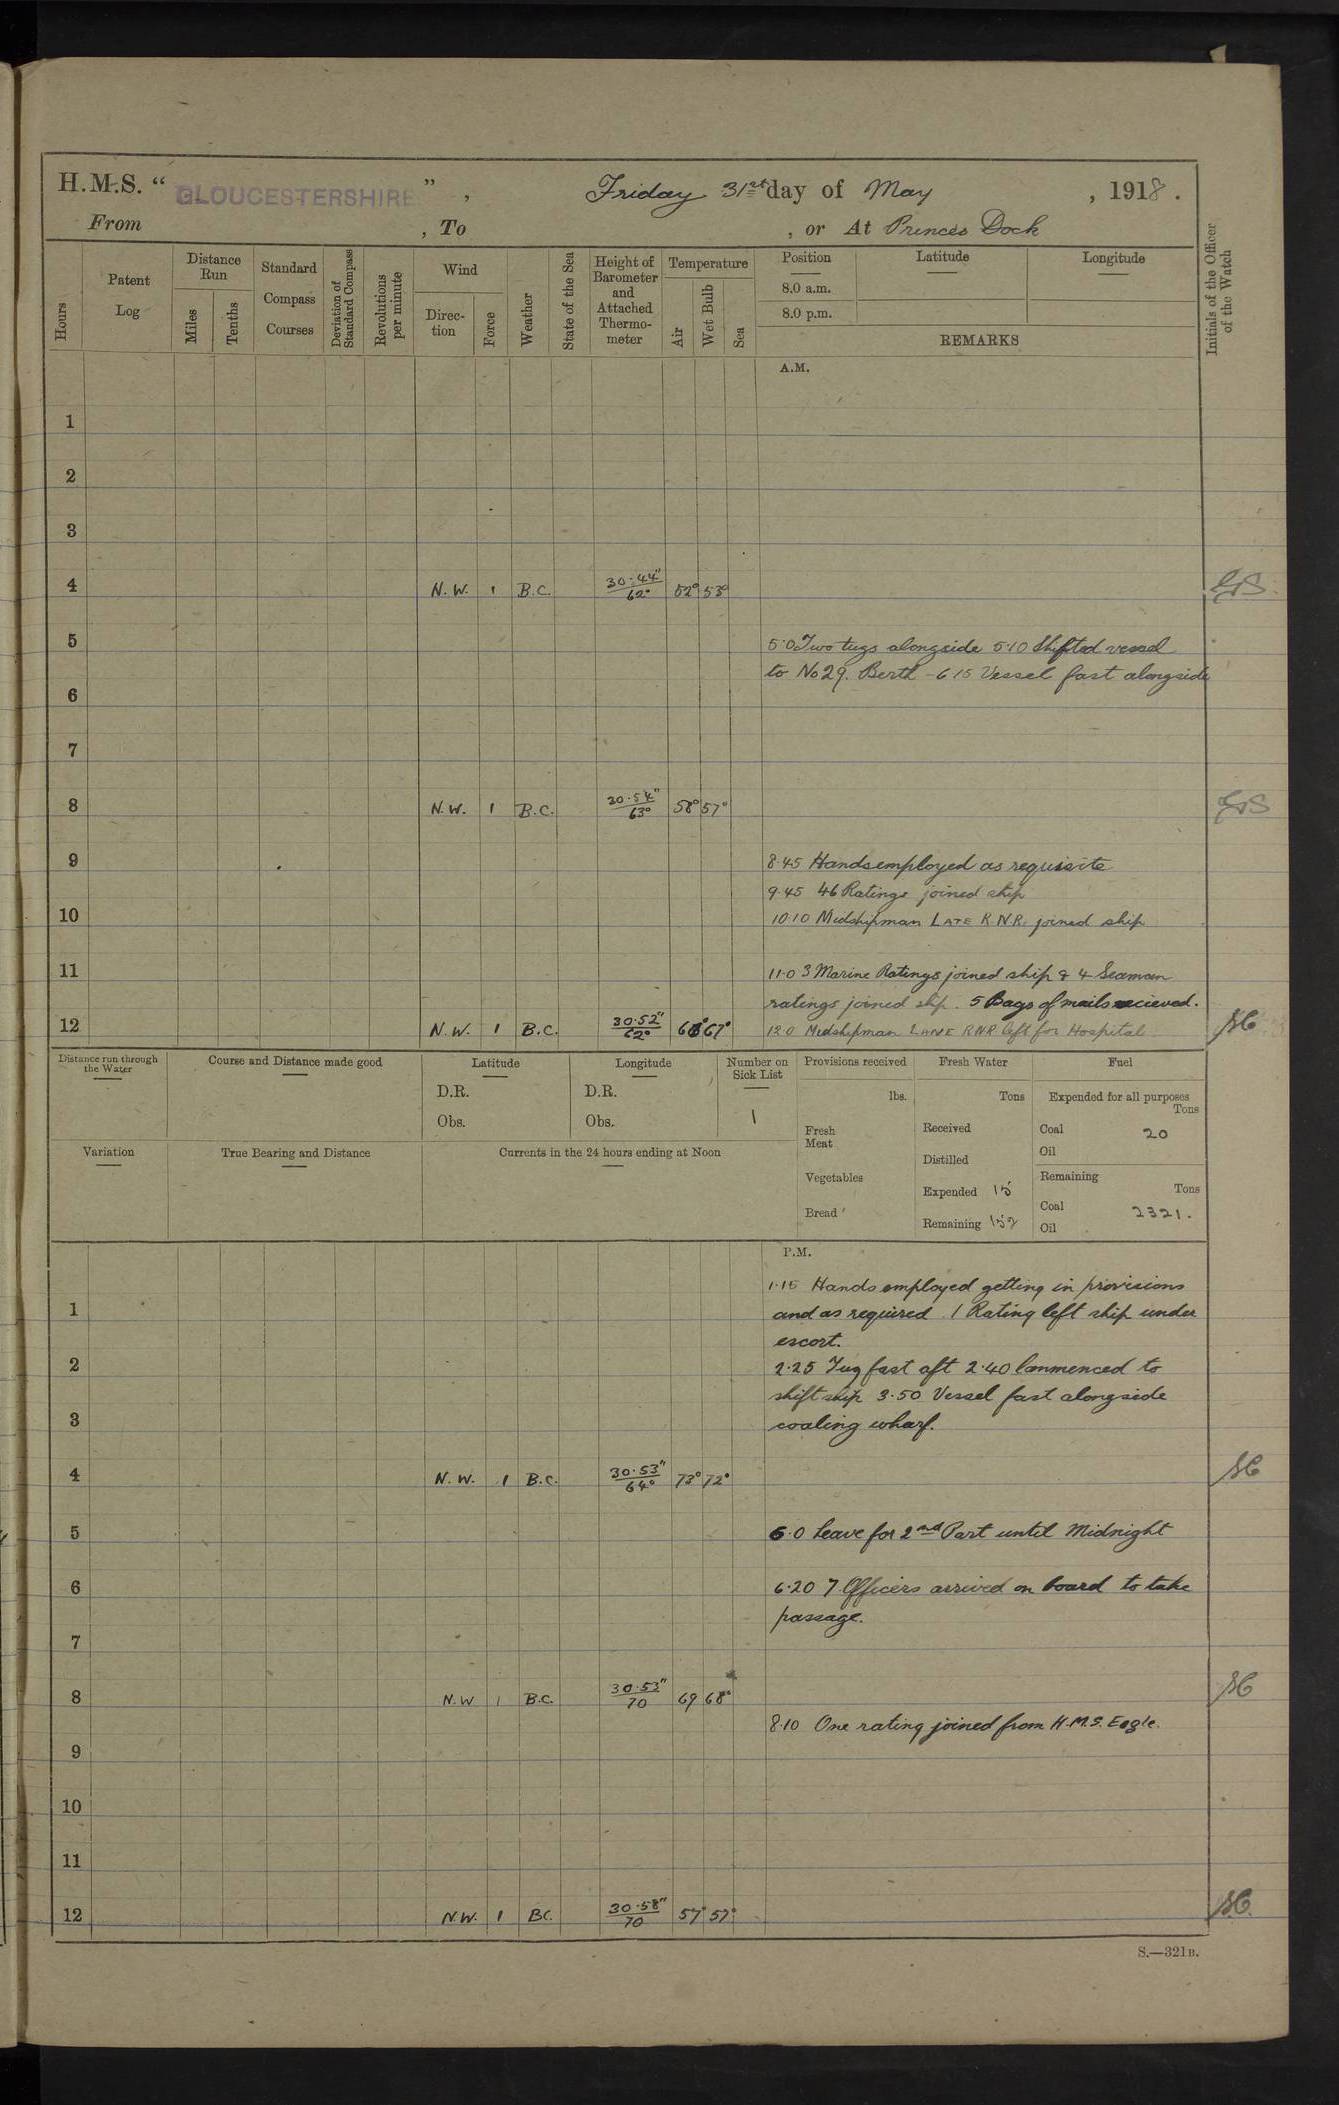 H.M.S. " GLOUCESTERSHIRE " , Friday 31st day of May , 1918 .
From , To , or At Princes Dock
Hours
Patent Log
Distance Run
Miles
Tenths
Standard Compass Courses
Deviation of Standard Compass
Revolutions per minute
Wind
Direc-tion
Force
Weather
State of the Sea
Height of Barometer and Attached Thermo-meter
Temperature
Air
Wet Bulb
Sea
Position Latitude Longitude
8.0 a.m.
8.0 p.m.
REMARKS
Initials of the Officer of the Watch
A.M.
1
2
3
4 N.W. 1 B.C. 30.44" 62° 52° 53°
5 5.0 Two tugs alongside 5.10 Shifted vessel
to No 29. Berth - 6 15 Vessel fast alongside
6
7
8 N.W. 1 B.C. 30.54" 63° 58° 57°
9 8.45 Hands employed as requisite
9.45 46 Ratings joined ship
10 10.10 Midshipman LATE R.N.R. joined ship
11 11.0 3 Marine Ratings joined ship & 4 Seaman
ratings joined ship. 5 Bags of mails recieved.
12 N.W. 1 B.C. 30.52" 62° 68° 67° 12 0 Midshipman LANE RNR left for Hospital
Distance run through the Water
Course and Distance made good
Latitude
D.R.
Obs.
Longitude
D.R.
Obs.
Number on Sick List
1
Provisions received
lbs.
Fresh Meat
Vegetables
Bread
Fresh Water
Tons
Received
Distilled
Expended 15
Remaining 152
Fuel
Expended for all purposes
Tons
Coal 20
Oil
Remaining
Tons
Coal 2321.
Oil
Variation
True Bearing and Distance
Currents in the 24 hours ending at Noon
P.M.
1.15 Hands employed getting in provisions
1 and as required. 1 Rating left ship under
escort.
2 2.25 Tug fast aft 2.40 Commenced to
shift ship 3.50 Vessel fast alongside
3 coaling wharf.
4 N.W. 1 B.C. 30.53" 64° 73° 72°
5 5.0 Leave for 2nd Part until Midnight
6 6.20 7 Officers arrived on board to take
passage.
7
8 N.W 1 B.C. 30.53" 70 69 68°
8.10 One rating joined from H.M.S. Eagle.
9
10
11
12 N.W. 1 BC. 30.58" 70 57° 57°
S.—321B.